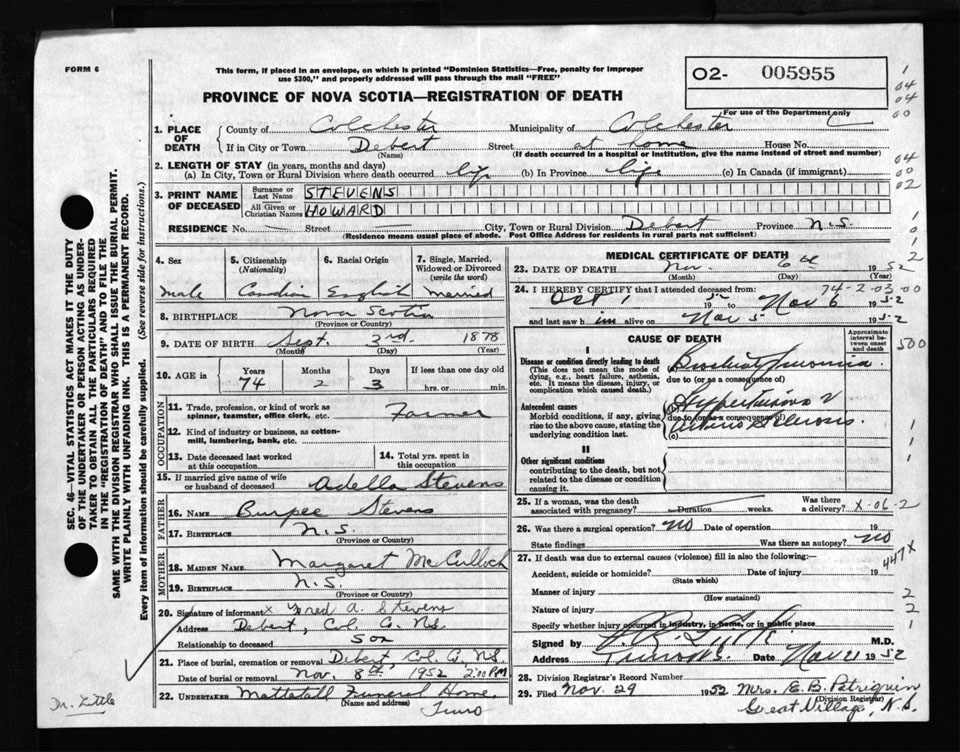 FORM 6
This form, if placed in an envelope, on which is printed "Dominion Statistics—Free, penalty for improper
use $300," and properly addressed will pass through the mail "FREE"
O2- 005955
For use of the Department only
PROVINCE OF NOVA SCOTIA—REGISTRATION OF DEATH
1. PLACE OF DEATH
County of Colchester Municipality of Colchester
If in City or Town Debert Street at home House No.
(Name) (If death occurred in a hospital or institution, give the name instead of street and number)
2. LENGTH OF STAY (in years, months and days)
(a) In City, Town or Rural Division where death occurred life (b) In Province life (c) In Canada (if immigrant)
3. PRINT NAME OF DECEASED
Surname or Last Name STEVENS
All Given or Christian Names HOWARD
RESIDENCE No. — Street — City, Town or Rural Division Debert Province N.S.
(Residence means usual place of abode. Post Office Address for residents in rural parts not sufficient)
4. Sex
male
5. Citizenship
(Nationality)
6. Racial Origin
English
7. Single, Married,
Widowed or Divorced
(write the word)
married
8. BIRTHPLACE Nova Scotia
(Province or Country)
9. DATE OF BIRTH Sept. 3rd. 1878
(Month) (Day) (Year)
10. AGE in
Years Months Days If less than one day old
74 2 3 hrs. or min.
OCCUPATION
11. Trade, profession, or kind of work as
spinner, teamster, office clerk, etc. Farmer
12. Kind of industry or business, as cotton-
mill, lumbering, bank, etc.
13. Date deceased last worked
at this occupation
14. Total yrs. spent in
this occupation
15. If married give name of wife
or husband of deceased Adella Stevens
FATHER
16. NAME Burpee Stevens
17. BIRTHPLACE N.S.
(Province or Country)
MOTHER
18. MAIDEN NAME Margaret McCulloch
19. BIRTHPLACE N.S.
(Province or Country)
20. Signature of informant x Fred A. Stevens
Address Debert, Col. Co. NS.
Relationship to deceased son
21. Place of burial, cremation or removal Debert, Col. Co. NS.
Date of burial or removal Nov. 8th 1952 2:00 PM
22. UNDERTAKER Mattatall Funeral Home,
(Name and address)
Truro
MEDICAL CERTIFICATE OF DEATH
23. DATE OF DEATH Nov. 6th 1952
(Month) (Day) (Year)
74-2-03-00
24. I HEREBY CERTIFY that I attended deceased from:
Oct 1 52 to Nov 6 1952
and last saw him alive on Nov 5 1952
CAUSE OF DEATH
Approximate
interval be-
tween onset
and death
I
Disease or condition directly leading to death
(This does not mean the mode of
dying, e.g., heart failure, asthenia,
etc. It means the disease, injury, or
complication which caused death.)
(a) Bronchial Pneumonia
due to (or as a consequence of)
Antecedent causes
Morbid conditions, if any, giving
rise to the above cause, stating the
underlying condition last.
(b) Hypertension
due to (or as a consequence of)
(c) Arterio Sclerosis.
II
Other significant conditions
contributing to the death, but not
related to the disease or condition
causing it.
25. If a woman, was the death
associated with pregnancy? Duration weeks.
Was there
a delivery?
X-06-2
26. Was there a surgical operation? no Date of operation 19
State findings Was there an autopsy? no
447X
27. If death was due to external causes (violence) fill in also the following:—
Accident, suicide or homicide? Date of injury 19
(State which)
Manner of injury
(How sustained)
Nature of injury
Specify whether injury occurred in industry, in home, or in public place
Signed by M.D.
Address Truro NS. Date Nov 21 1952
28. Division Registrar's Record Number
29. Filed Nov. 29 1952 Mrs. E. B. Patriquin
(Division Registrar)
Great Village, N.S.
SEC. 46—VITAL STATISTICS ACT MAKES IT THE DUTY
OF THE UNDERTAKER OR PERSON ACTING AS UNDER-
TAKER TO OBTAIN ALL THE PARTICULARS REQUIRED
IN THE "REGISTRATION OF DEATH" AND TO FILE THE
SAME WITH THE DIVISION REGISTRAR WHO SHALL ISSUE THE BURIAL PERMIT.
WRITE PLAINLY WITH UNFADING INK. THIS IS A PERMANENT RECORD.
Every item of information should be carefully supplied. (See reverse side for instructions.)
Dr. Little
1
04
04
00
04
00
02
1
0
1
2
00
500
1
1
1
2
2
1